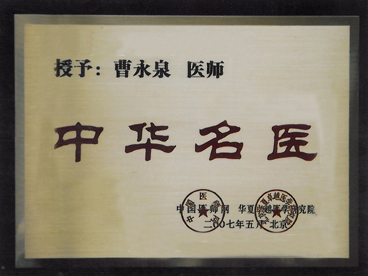 授予：曹永泉 医师
中华名医
中国医师网 华夏卓越医学研究院
二00七年五月 北京